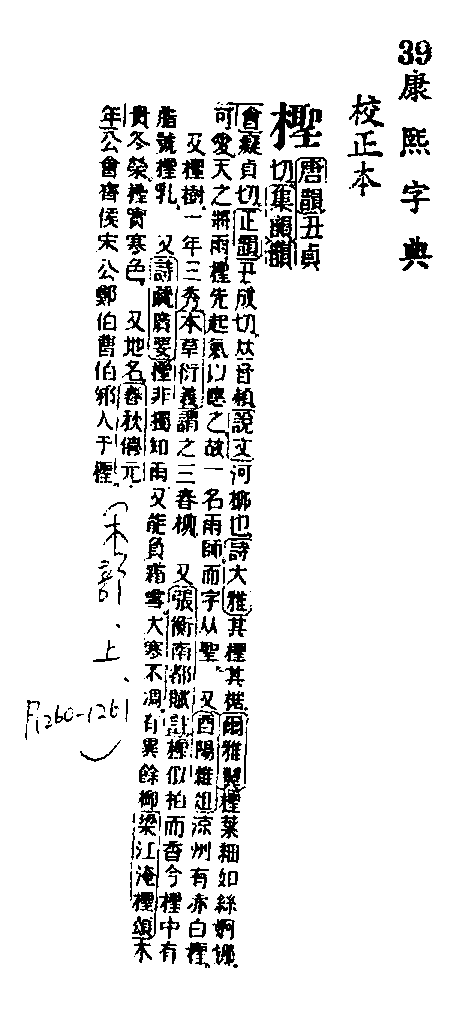 39康熙字典
校正本
檉
唐韻丑貞
切集韻韻
會癡貞切正韻丑成切𠀤音頳說文河柳也詩大雅其檉其椐爾雅翼檉葉細如絲婀娜
可愛天之將雨檉先起氣以應之故一名雨師而字从聖 又酉陽雜俎涼州有赤白檉
又檉樹一年三秀本草衍義謂之三春柳 又張衡南都賦註檉似柏而香今檉中有
脂號檉乳 又詩疏廣要檉非獨知雨又能負霜雪大寒不凋有異餘柳梁江淹檉頌木
貴冬榮檉實寒色 又地名春秋僖元
年公會齊侯宋公鄭伯曹伯邾人于檉
(木部、上、
P1260-1261)